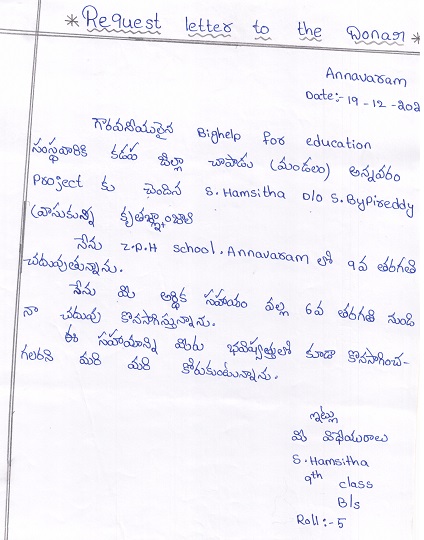 * Request letter to the Donar *
Annavaram
Date:- 19-12-202
గౌరవనీయులైన Bighelp for education
సంస్థవారికి కడప జిల్లా చాపాడు (మండలం) అన్నవరం
Project కు చెందిన S.Hamsitha D/o S.ByPireddy
వ్రాసుకున్న కృతజ్ఞాంజలి
నేను Z.P.H school.Annavaram లో 9వ తరగతి
చదువుతున్నాను.
నేను మీ ఆర్థిక సహాయం వల్ల 6వ తరగతి నుండి
నా చదువు కొనసాగిస్తున్నాను.
ఈ సహాయాన్ని మీరు భవిష్యత్తులో కూడా కొనసాగించ-
గలరని మరి మరి కోరుకుంటున్నాను.
ఇట్లు
మీ విధేయురాలు
S.Hamsitha
9th class
B/s
Roll:-5